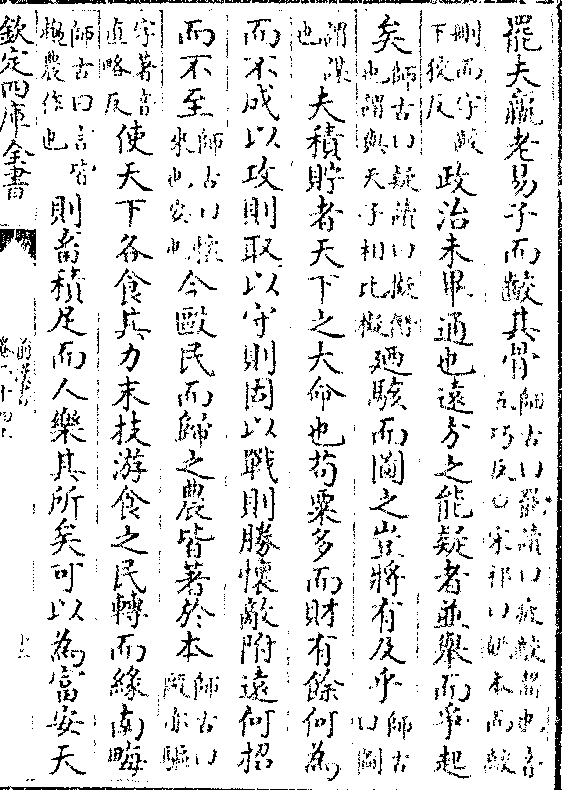 罷夫羸老易子而齩其骨師古曰罷讀曰疲齩齧也音五巧反○宋祁曰姚本而齩
刪而字齩下狡反政治未畢通也遠方之能疑者並舉而爭起
矣師古曰疑讀曰擬僭也謂與天子相比擬廼駭而圖之豈將有及乎師古曰圖
謂謀也夫積貯者天下之大命也苟粟多而財有餘何為
而不成以攻則取以守則固以戰則勝懷敵附遠何招
而不至師古曰懷來也安也今敺民而歸之農皆著於本師古曰敺亦驅
字著音直略反使天下各食其力末技游食之民轉而緣南畮
師古曰言皆趨農作也則畜積足而人樂其所矣可以為富安天
欽定四庫全書
前漢書
卷二十四上